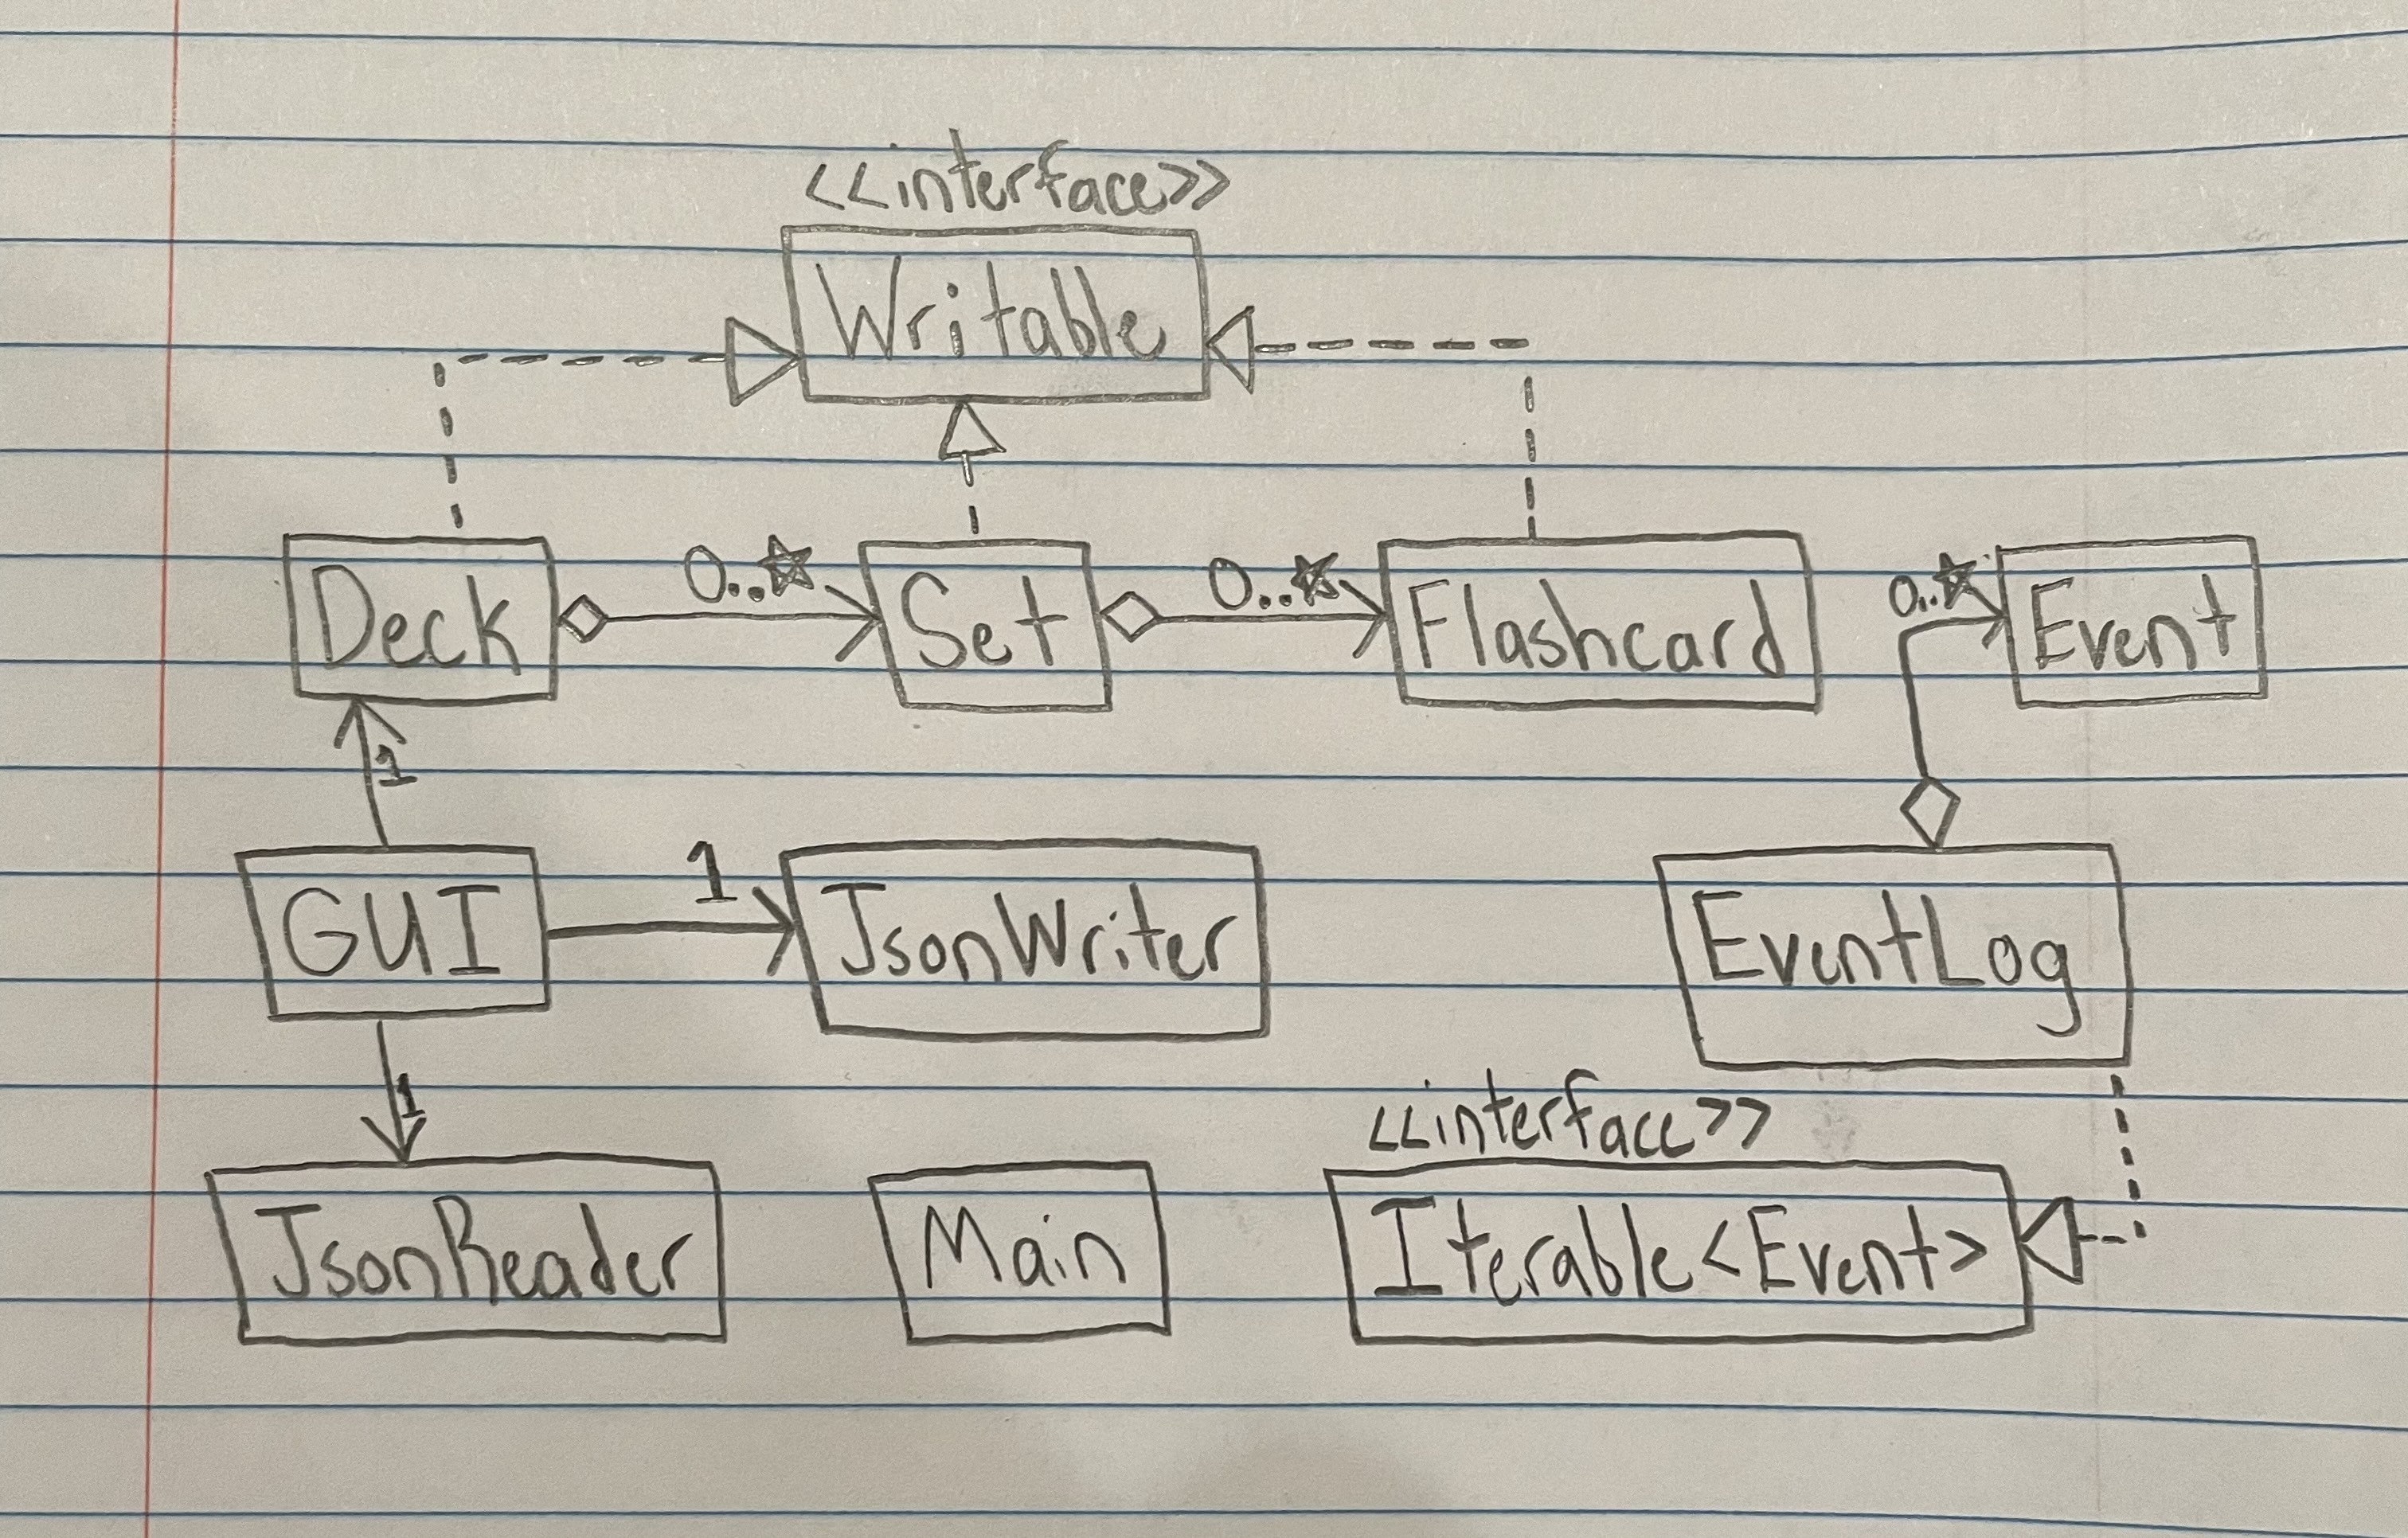 <<interface>>
Writable
Deck
0..*
Set
0..*
Flashcard
0..*
Event
1
GUI
1
JsonWriter
EventLog
1
<<interface>>
JsonReader
Main
Iterable<Event>